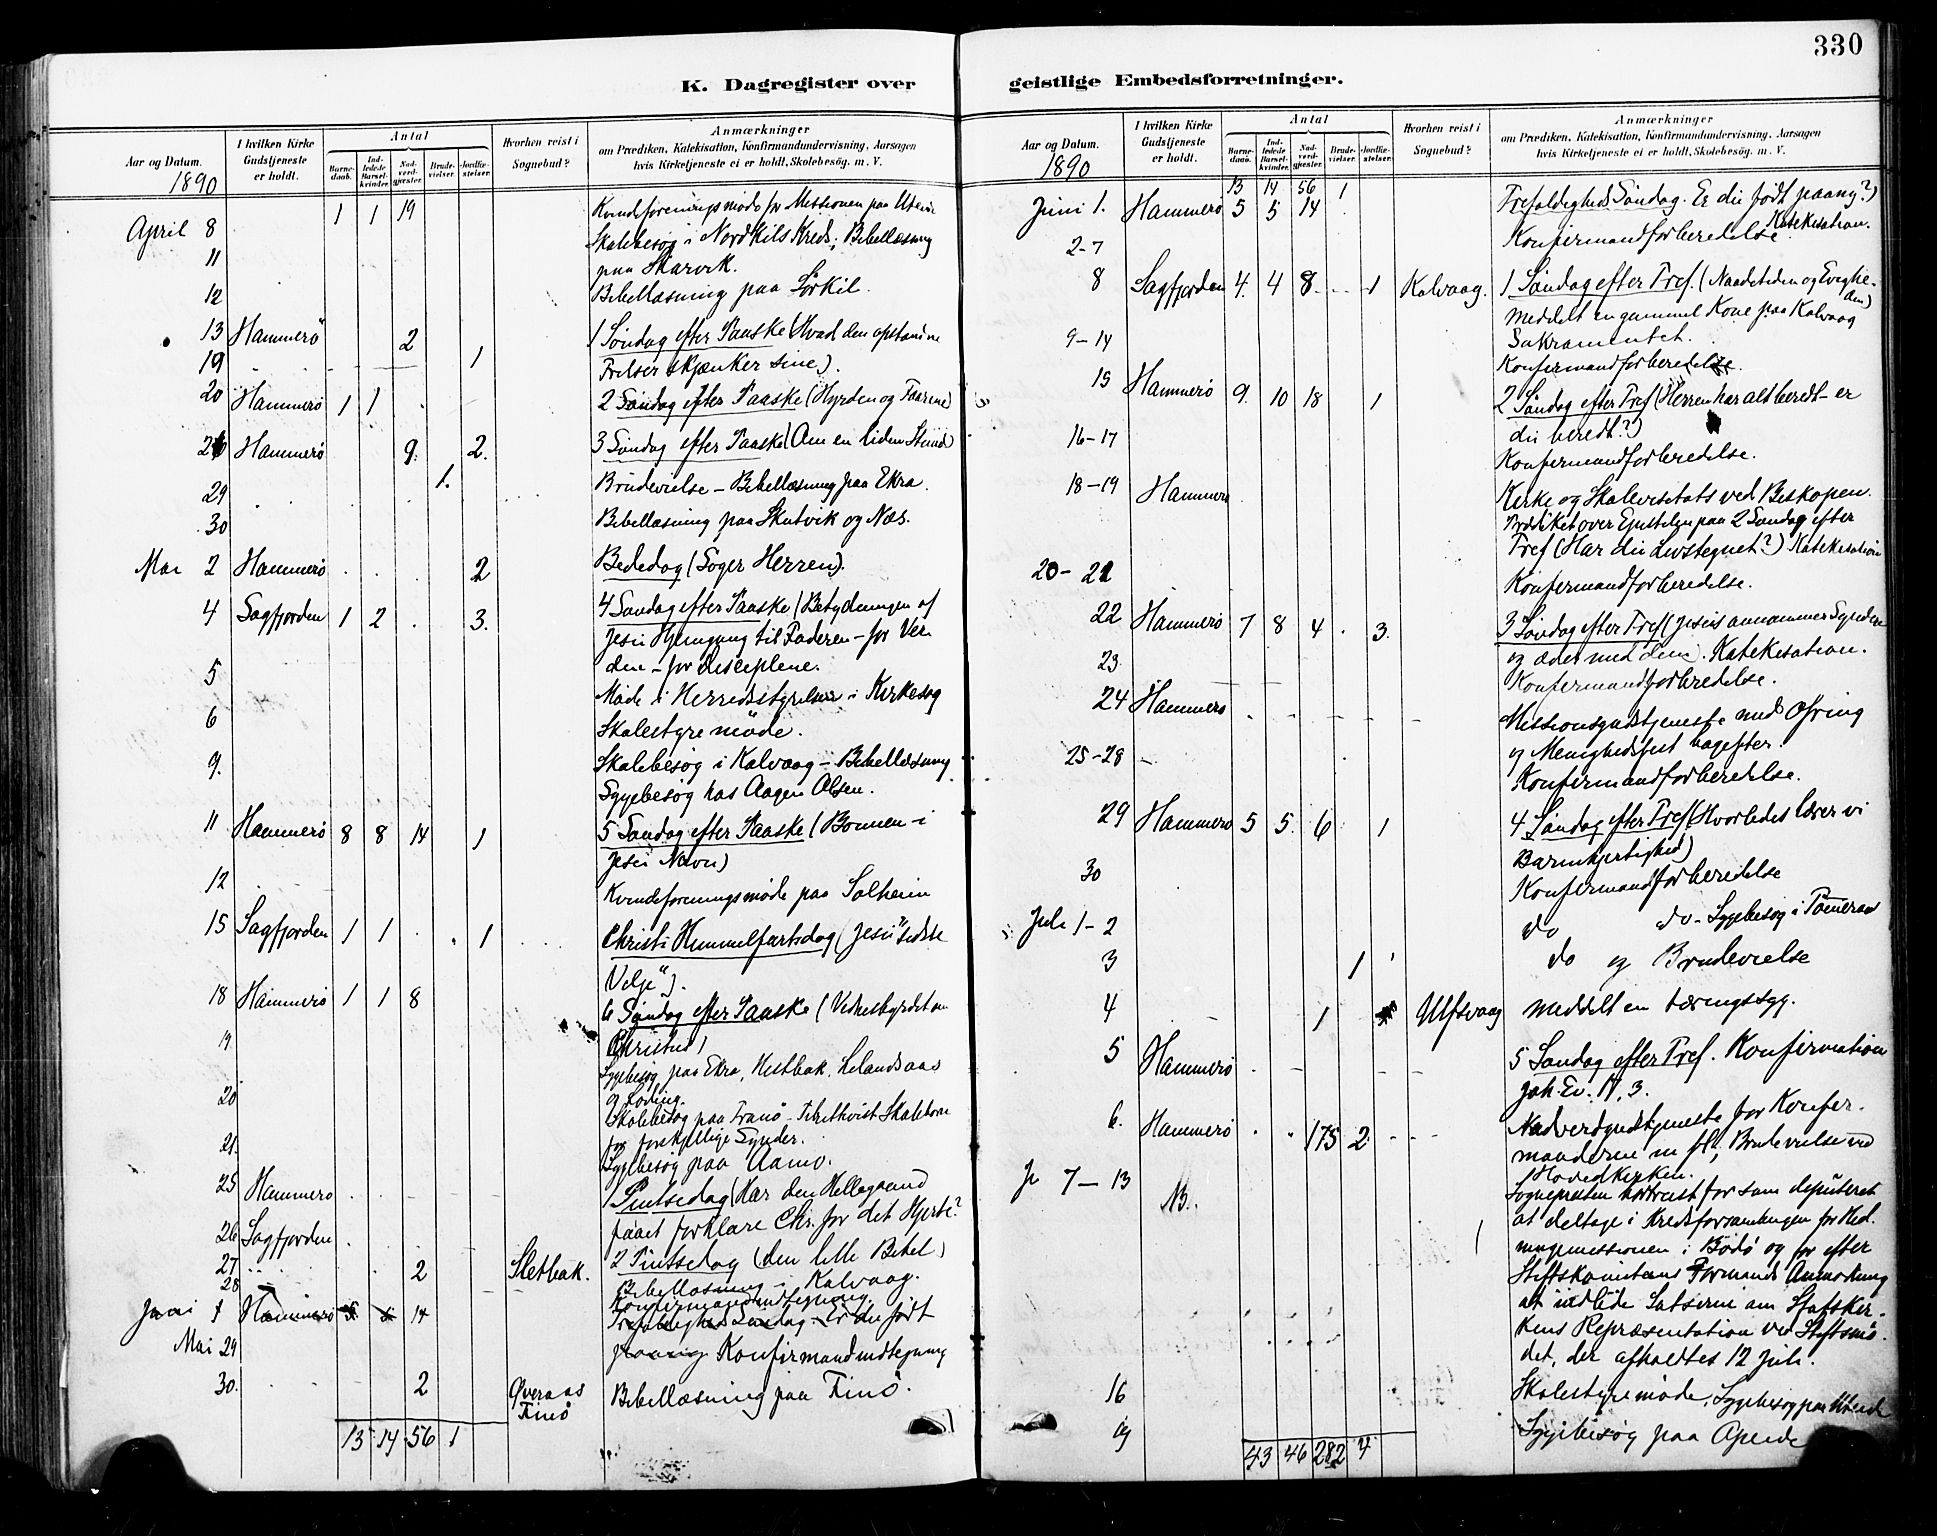 330
K. Dagregister over
Aar og Datum.
1890
I hvilken Kirke Gudstjeneste er holdt.
Antal
Barnedaab.
Indledede Barselkvinder.
Nadverdgjester.
Brudevielser.
Jordfæstelser.
Hvorhen reist i Sognebud?
Anmærkninger
om Prædiken, Katekisation, Konfirmandundervisning, Aarsagen
hvis Kirketjeneste ei er holdt, Skolebesög. m. V.
1 1 19
April 8 Kvindeforeningsmøde for Missionen paa
11 Skolebesøg i Nordkils Kreds; Bibellæsning
paa Skarvik.
12 Bibellæsning paa Sørkil.
13 Hammerö 2 1 Søndag efter Paaske (Hvad den opstandne
19 1 Frelser skjænker sine).
20 Hammerö 1 1 2 Søndag efter Paaske (Hyrden og Faarene)
26 Hammerö 9. 2. 3 Søndag efter Paaske (Om en liden Stund)
1. Brudevielse - Bibellæsning paa Ekra.
29
30 Bibellæsning paa Skutvik og Næs.
Mai 2 Hammerö 2 Bededag (Søger Herren).
4 Sagfjorden 1 2 3. 4 Søndag efter Paaske (Betydningen af
Jesu Hjemgang til Faderen - for Ver
den - for disciplene.
5 Møde i Herredsstyrelsen i Kirkesog
6 Skolestyremöde.
9. Skolebesøg i Kalvaag - Bibellæsning
Sygebesøg hos Aagen Olsen.
11 Hammerö 8 8 14 1 5 Søndag efter Paaske (Bønnen i
Jesu Navn)
12 Kvindeforeningsmøde paa Solheim
15 Sagfjorden 1 1 1 Christi Himmelfartsdag (Jesu "sidste
Vilje").
18 Hammerö 1 1 8 6 Søndag efter Paaske (Vidnesbyrdet om
Christus)
19 Sygebesøg paa Ekra, Hestbak, Lelandsaas
20 Skolebesøg paa Tranö
for forskjellige Synder.
21. Sygebesøg paa
25 Hammerö 1 Pintsedag (Har den Helligaand
faaet forklare Chr. for dit Hjerte?
26 Sagfjorden 2 Pintsedag (den lille Bibel)
27 2 Sletbak. Bibellæsning i Kalvaag.
28 Konfirmandindtegning.
Juni 1 Hammerö 5 5 14 Trefoldigheds Søndag - Er du født
Mai 29 paany Konfirmandindtegning
30. 2 Øveraas Finö Bibellæsning paa Finö.
13 14 56 1
geistlige Embedsforretninger.
Aar og Datum.
1890
I hvilken Kirke Gudstjeneste er holdt.
Antal
Barnedaab.
Indledede Barselkvinder.
Nadverdgjester.
Brudevielser.
Jordfæstelser.
Hvorhen reist i Sognebud?
Anmærkninger
om Prædiken, Katekisation, Konfirmandundervisning, Aarsagen
hvis Kirketjeneste ei er holdt, Skolebesög. m. V.
13 14 56 1
Juni 1. Hammerö 5 5 14 Trefoldigheds Søndag. Er du født paany?)
Katekisation.
2-7 Konfirmandforberedelse
8 Sagfjorden 4. 4 8 1 Kalvaag. 1 Søndag efter Tref. (Naadetiden og Evighe-
den)
Meddelt en gammel Kone paa Kalvaag
Sakramentet.
9-14 Konfirmandforberedelse.
15 Hammerö 9. 10 18 1 2 Søndag efter Tref (Herren har alt beredt - er
du beredt?)
16-17 Konfirmandforberedelse.
18-19 Hammerö Kirke og Skolevisitats ved Biskopen.
Prædiket over Epistelen paa 2 Søndag efter
Tref (Har du Livstegnet?) Katekisation
20-21 Konfirmandforberedelse.
22 Hammerö 7 8 4 3. 3 Søndag efter Tref (Jesus annammer Syndere
og æder med dem). Katekisation.
23 Konfirmandforberedelse.
24 Hammerö Missionsgudstjeneste med Ofring
og Menighedsfest bagefter.
25-28 Konfirmandforberedelse.
29 Hammerö 5 5. 6 1 4 Søndag efter Tref (Hvorledes lærer vi
Barmhjertighed)
30 Konfirmandforberedelse
Juli 1-2 do do - Sygebesøg i
3 1 do og Brudevielse
4 1 Ulfsvaag meddelt en tæringssyg.
5 Hammerö 5 Søndag efter Tref. Konfirmation
Joh. Ev. 17, 3.
6. Hammerö 175 2 Nadverdgudstjeneste for Konfir-
manderne m fl, Brudevielse ved
Hovedkirken.
Jr 7-13 NB. Sognepresten bortreist for som deputeret
at deltage i Kredsforsamlingen for Hed-
ningemissionen i Bodö og for efter
Stiftskomiteens Formands Anmodning
at indlede Satserne om Statskir-
kens Repræsentation ved Stiftsmö-
det, der afholdtes 12 Juli.
16 Skolestyremöde, Sygebesøg paa
og Sygebesøg paa
43 46 282 4